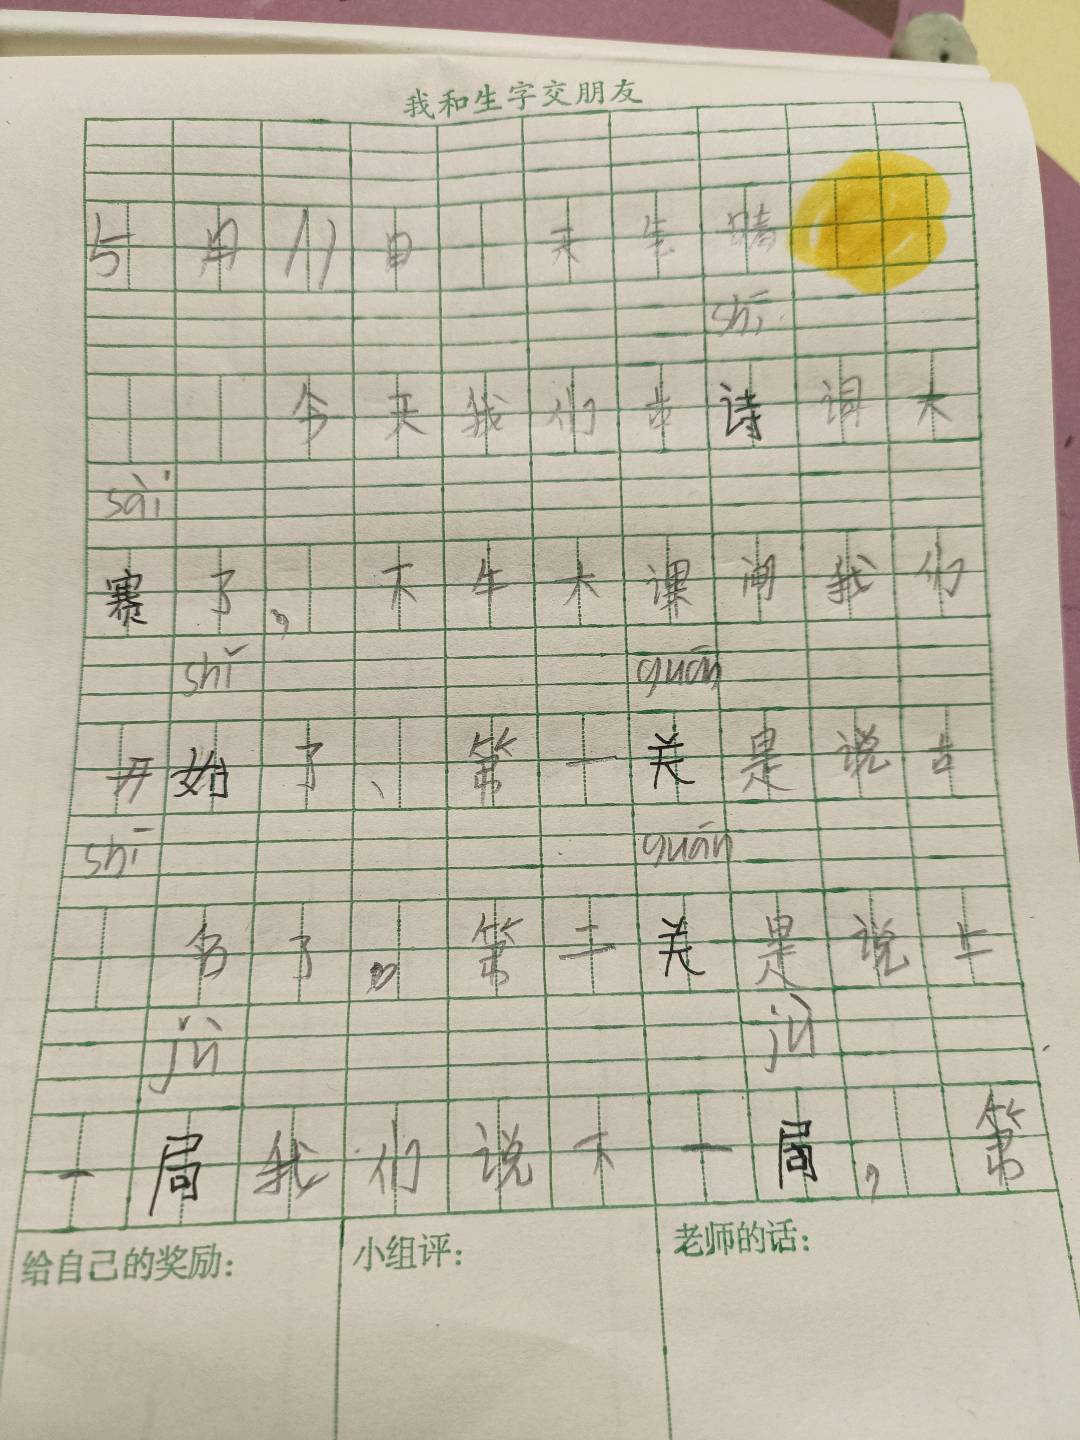 我和生字交朋友
5月11日 天气晴
shī
今天我们古诗词大
sài
赛了，下午大课间我们
shǐ guān
开始了、第一关是说古
shī guān
名了。第二关是说上
jù jù
一局我们说下一局，第
给自己的奖励： 小组评： 老师的话：